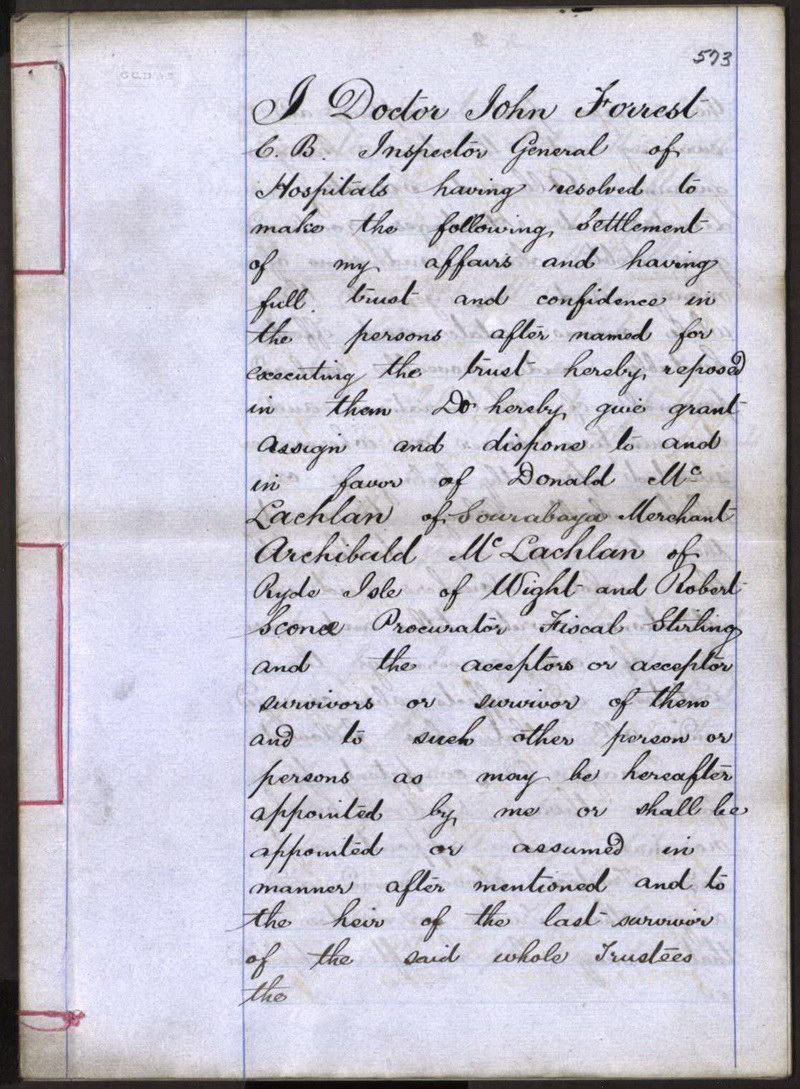 573
I Doctor John Forrest
C. B. Inspector General of
Hospitals having resolved to
make the following Settlement
of my affairs and having
full trust and confidence in
the persons after named for
executing the trust hereby reposed
in them Do hereby give grant
Assign and dispone to and
in favor of Donald Mc
Lachlan of Sourabaya Merchant
Archibald Mc Lachlan of
Ryde Isle of Wight and Robert
Sconce Procurator Fiscal Stirling
and the acceptors or acceptor
survivors or survivor of them
and to such other person or
persons as may be hereafter
appointed by me or shall be
appointed or assumed in
manner after mentioned and to
the heir of the last survivor
of the said whole Trustees
the